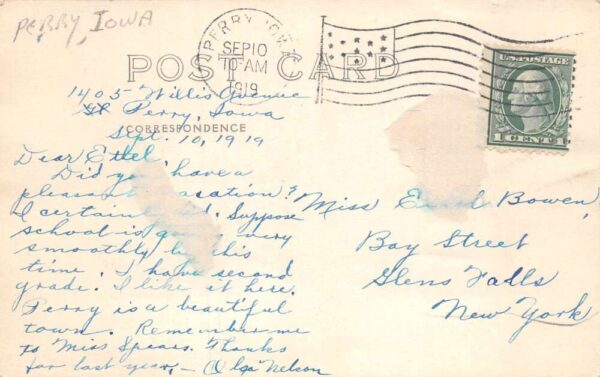 PERRY, IOWA
PERRY, IOWA
SEP 10
10-AM
1919
U.S. POSTAGE
1 CENT 1
POST CARD
1405 Willis Avenue
Perry, Iowa
Sept. 10, 1919
CORRESPONDENCE
Dear Ethel,
Did you have a
pleasant vacation?
I certainly did. Suppose
school is going very
smoothly by this
time. I have second
grade. I like it here.
Perry is a beautiful
town. Remember me
to Miss Spears. Thanks
for last year, – Olga Nelson
Miss Bowen,
Bay Street
Glens Falls
New York